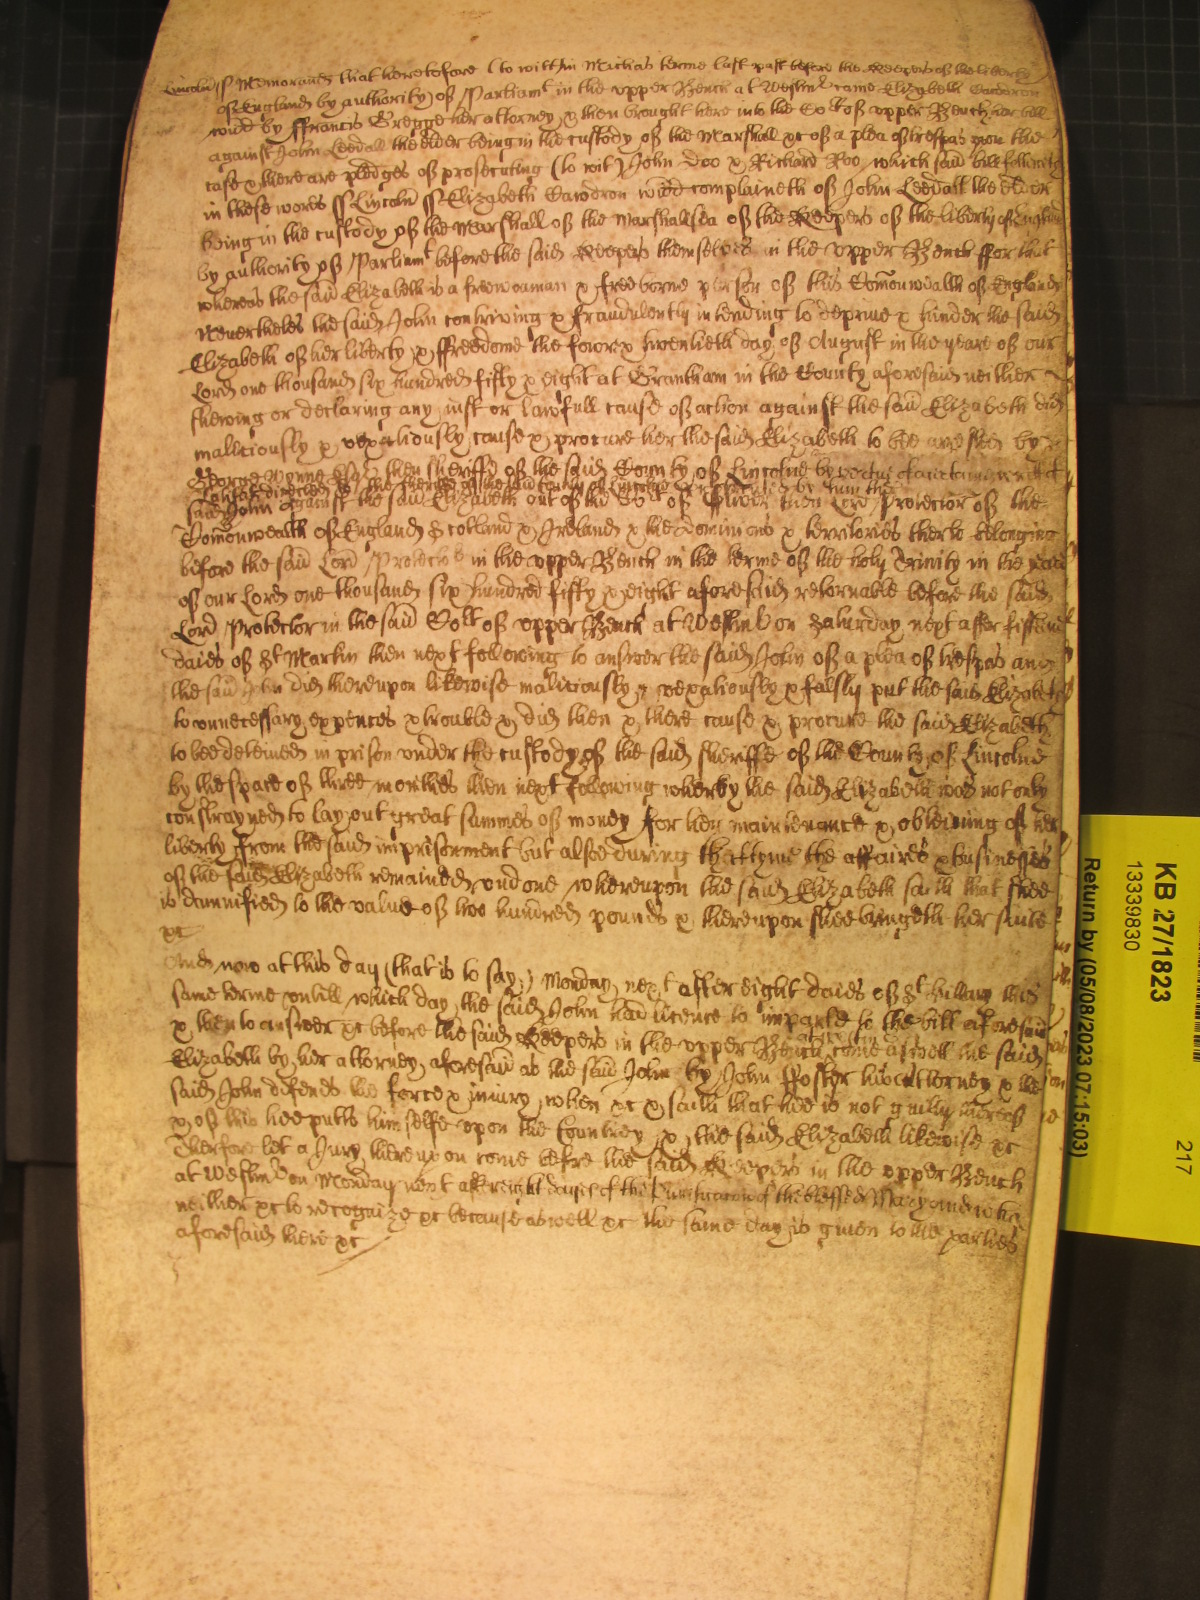 Lincoln ss Memorand that heretofore (to witt) in Michas terme last past before the Keepers of the liberty
of England by authority of Parliamt in the upper Bench at Westmr came Elizabeth Cawdron
widd by ffrancis Gregge her attorney & then brought here into the Cort of upper Bench her bill
against John Leedall the elder being in the custody of the Marshall &c of a plea of trespas upon the
case & there are pledges of prosecuting (to wit) John Doo & Richard Roo which said bill followeth
in these words ss Lincoln ss Elizabeth Cawdron widd complaineth of John Leedall the elder
being in the custody of the Marshall of the Marshallsea of the Keepers of the liberty of England
by authority of Parliamt before the said Keepers themselves in the upper Bench ffor that
whereas the said Elizabeth is a freewoaman & freeborne person of this Comonwealth of England
Nevertheles the said John contriving & fraudulently intending to deprive & hinder the said
Elizabeth of her liberty & ffreedome the fower & twentieth day of August in the yeare of our
Lord one thousand six hundred fifty & eight at Grantham in the County aforesaid neither
shewing or declaring any just or lawfull cause of action against the said Elizabeth did
malliciously & vexatiously cause & procure her the said Elizabeth to bee arrested by
George then sheriffe of the said County of Lincolne by vertue of a certaine writt of
directed to the sheriffe of the said County of Lincolne by him the
said John against the said Elizabeth out of the Cort of Oliver then Lord Protector of the
Comonwealth of England Scotland & Ireland & the dominions & territories therto belonging
before the said Lord Protector in the upper Bench in the terme of the holy Trinity in the yeare
of our Lord one thousand six hundred fifty & eight aforesaid retornable before the said
Lord Protector in the said Cort of upper Bench at Westmr on Saturday next after fifteene
daies of St Martin then next following to answer the said John of a plea of trespas and
the said John did thereupon likewise maliciously & vexatiously & falsly put the said Elizabeth
to unnecessary expences & trouble & did then & there cause & procure the said Elizabeth
to bee deteined in prison under the custody of the said sheriffe of the County of Lincolne
by the space of three monthes then next following wherby the said Elizabeth was not only
constrayned to lay out great summes of money for her maintenance & obteining of her
liberty from the said imprisonment but alsoe during that tyme the affaires & businesses
of the said Elizabeth remained undone whereupon the said Elizabeth saith that shee
is damnified to the value of two hundred pounds & thereupon shee bringeth her suite
&c
And now at this day (that is to say) Monday next after eight daies of St Hillary this
same terme untill which day the said John had licence to imparle to the bill aforesaid
& then to answer &c before the said Keepers in the upper Bench came aswell the said
Elizabeth by her attorney aforesaid as the said John by John ffoster his attorney & the
said John defends the force & injury when &c & saith that hee is not guilty thereof
& of this hee putts himselfe upon the Countrey & the said Elizabeth likewise &c
Therfore let a Jury thereupon come before the said Keepers in the upper Bench
at Westmr on Monday next after eight daies of the Purification of the blessed Mary and who
neither &c to recognize &c because aswell &c the same day is given to the parties
aforesaid there &c
KB 27/1823
13339830
Return by (05/08/2023 07:15:03)
217